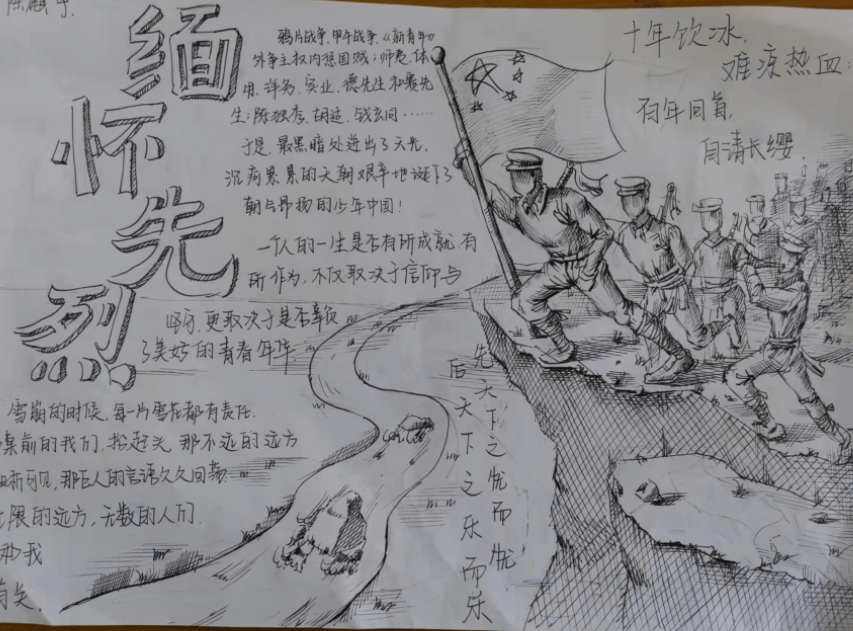 缅怀先烈
鸦片战争、甲午战争、《新青年》
外争主权内惩国贼;师夷、体
用、洋务、实业、德先生和赛先
生;陈独秀、胡适、钱玄同……
于是,最黑暗处迸出了天光,
沉疴累累的天朝艰辛地诞下了
朝气昂扬的少年中国!
一个人的一生是否有所成就,有
所作为,不仅取决于信仰与
坚守,更取决于是否辜负
了美好的青春年华.
雪崩的时候,每一片雪花都有责任.
桌前的我们,抬起头,那不远的远方
晰可见,那巨人的言语久久回荡
无限的远方,无数的人们.
和我
有关.
十年饮冰,
难凉热血;
百年回首,
自请长缨.
先天下之忧而忧
后天下之乐而乐